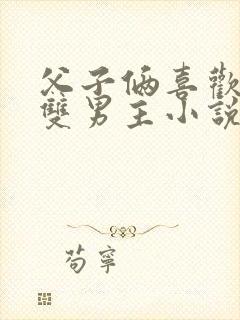 父子倆喜歡
雙男主小說
苟寧